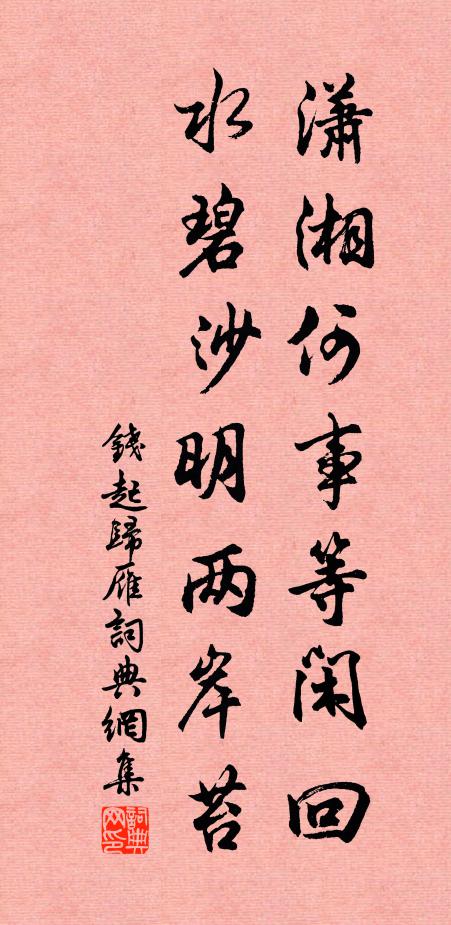 潇湘何事等闲回
水碧沙明两岸苔
錢起歸雁詞典網集
詞典网印